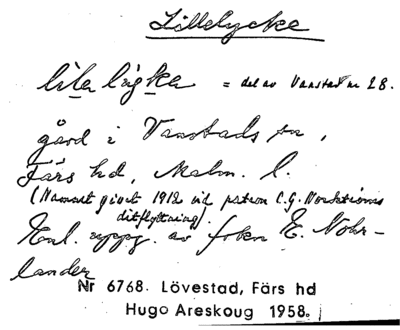 Lillelycke
lila lügka = del av Vanstad nr 28.
gård i Vanstads sn,
Färs hd, Malm. l.
(Namnet givet 1912 vid patron C.G. Nordströms
ditflyttning).
Enl. uppg. av frkn E. Nohr-
lander
Nr 6768. Lövestad, Färs hd
Hugo Areskoug 1958.